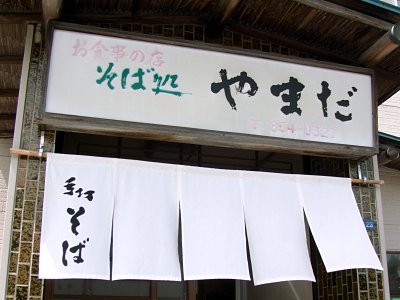 お食事の店
そば処
やまだ
手打
そば